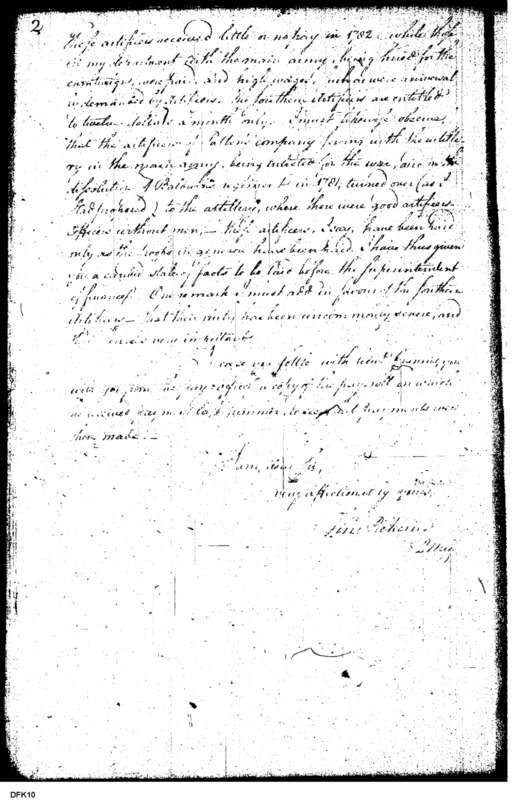 2
These artificers received little or no pay in 1782, while those
in my department with the main army, being hired for the
campaign, were paid, and high wages, which were universally
demanded by Artificers. The southern Artificers are entitled
to twelve dollars a month only. I must likewise observe
that the artificers of Pattens company serving with the artille-
ry in the main army, being enlisted for the war, and on the
dissolution of Baldwin's regiment in 1781, turned over (as I
had proposed) to the artillery, where there were good artificers
officers without men,— these artificers, I say, have been paid
only as the troops in general have been paid. I have thus given
you a candid state of facts to be laid before the Superintendent
of finances. One remark I must add in favour of the southern
Artificers — that their duty has been uncommonly severe, and
very important
case you settle with
will get from the pay office a copy of the pay roll on which
he received last summer, payments were
then made.—
I am, dear Sir,
very affectionately yours
Tim: Pickering
QMG
DFK10